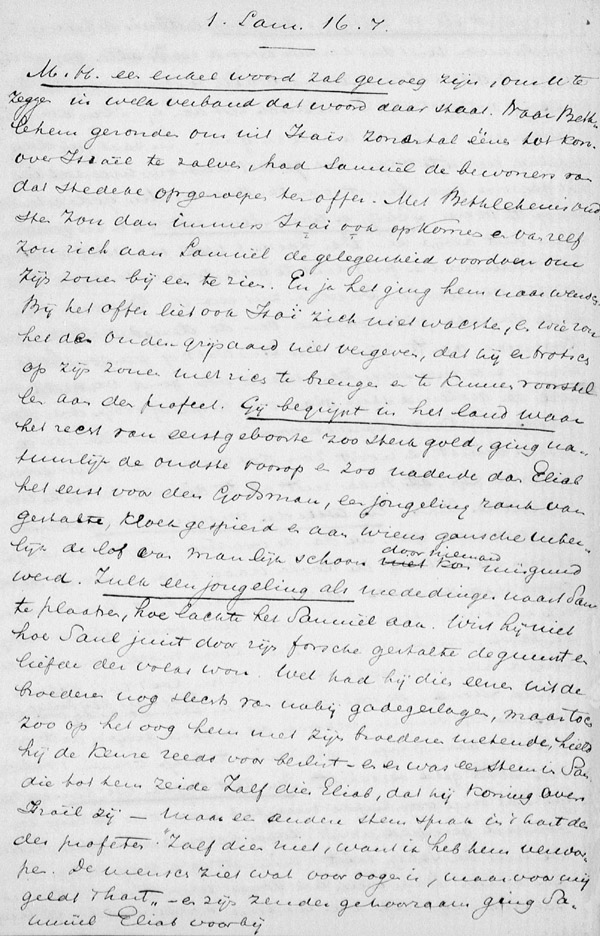 1. Sam. 16.7.
M. H. een enkel woord zal genoeg zijn, om U te
zeggen in welk verband dat woord daar staat. Naar Beth-
lehem gezonden om uit Isaïs zonental éénen tot Koning
over Israël te zalven, had Samuël de bewoners van
dat stedeke opgeroepen ten offer. Met Bethlehems oud
sten zou dan immers Isaï ook opkomen en vanzelf
zou zich aan Samuël de gelegenheid voordoen om
zijn zonen bij een te zien. En ja het ging hem naar wensch.
Bij het offer liet ook Isaï zich niet wachten, en wie zou
het den ouden grijsaard niet vergeven, dat hij er trotsch
op zijn zonen met zich te brengen en te kunnen voorstel
len aan den profeet. Gij begrijpt in het land waar
het recht van eerstgeboorte zoo sterk gold, ging na-
tuurlijk de oudste voorop en zoo naderde dan Eliab
het eerst voor den Godsman, een jongeling rank van
gestalte, kloek gespierd en aan wiens gansche uiter-
lijk de lof van manlijk schoon door niemand kon misgund
werd. Zulk een jongeling als mededinger naast Saul
te plaatsen, hoe lachte het Samuël aan. Wist hij niet
hoe Saul juist door zijn forsche gestalte de gunst en
liefde des volks won. Wel had hij dien eenen uit de
broederen nog slechts van nabij gadegeslagen, maar toch
zoo op het oog hem met zijn broederen metende, hield
hij de keuze reeds voor beslist – en er was een stem in Sam.
die tot hem zeide Zalf dien Eliab, dat hij Koning over
Israël zij – maar een andere stem sprak in 't hart des
des profeten. "Zalf dien niet, want ik heb hem verwor-
pen. De mensch ziet wat voor oogen is, maar voor mij
geldt 't hart„ – en zijn zender gehoorzaam ging Sa-
muël Eliab voorbij